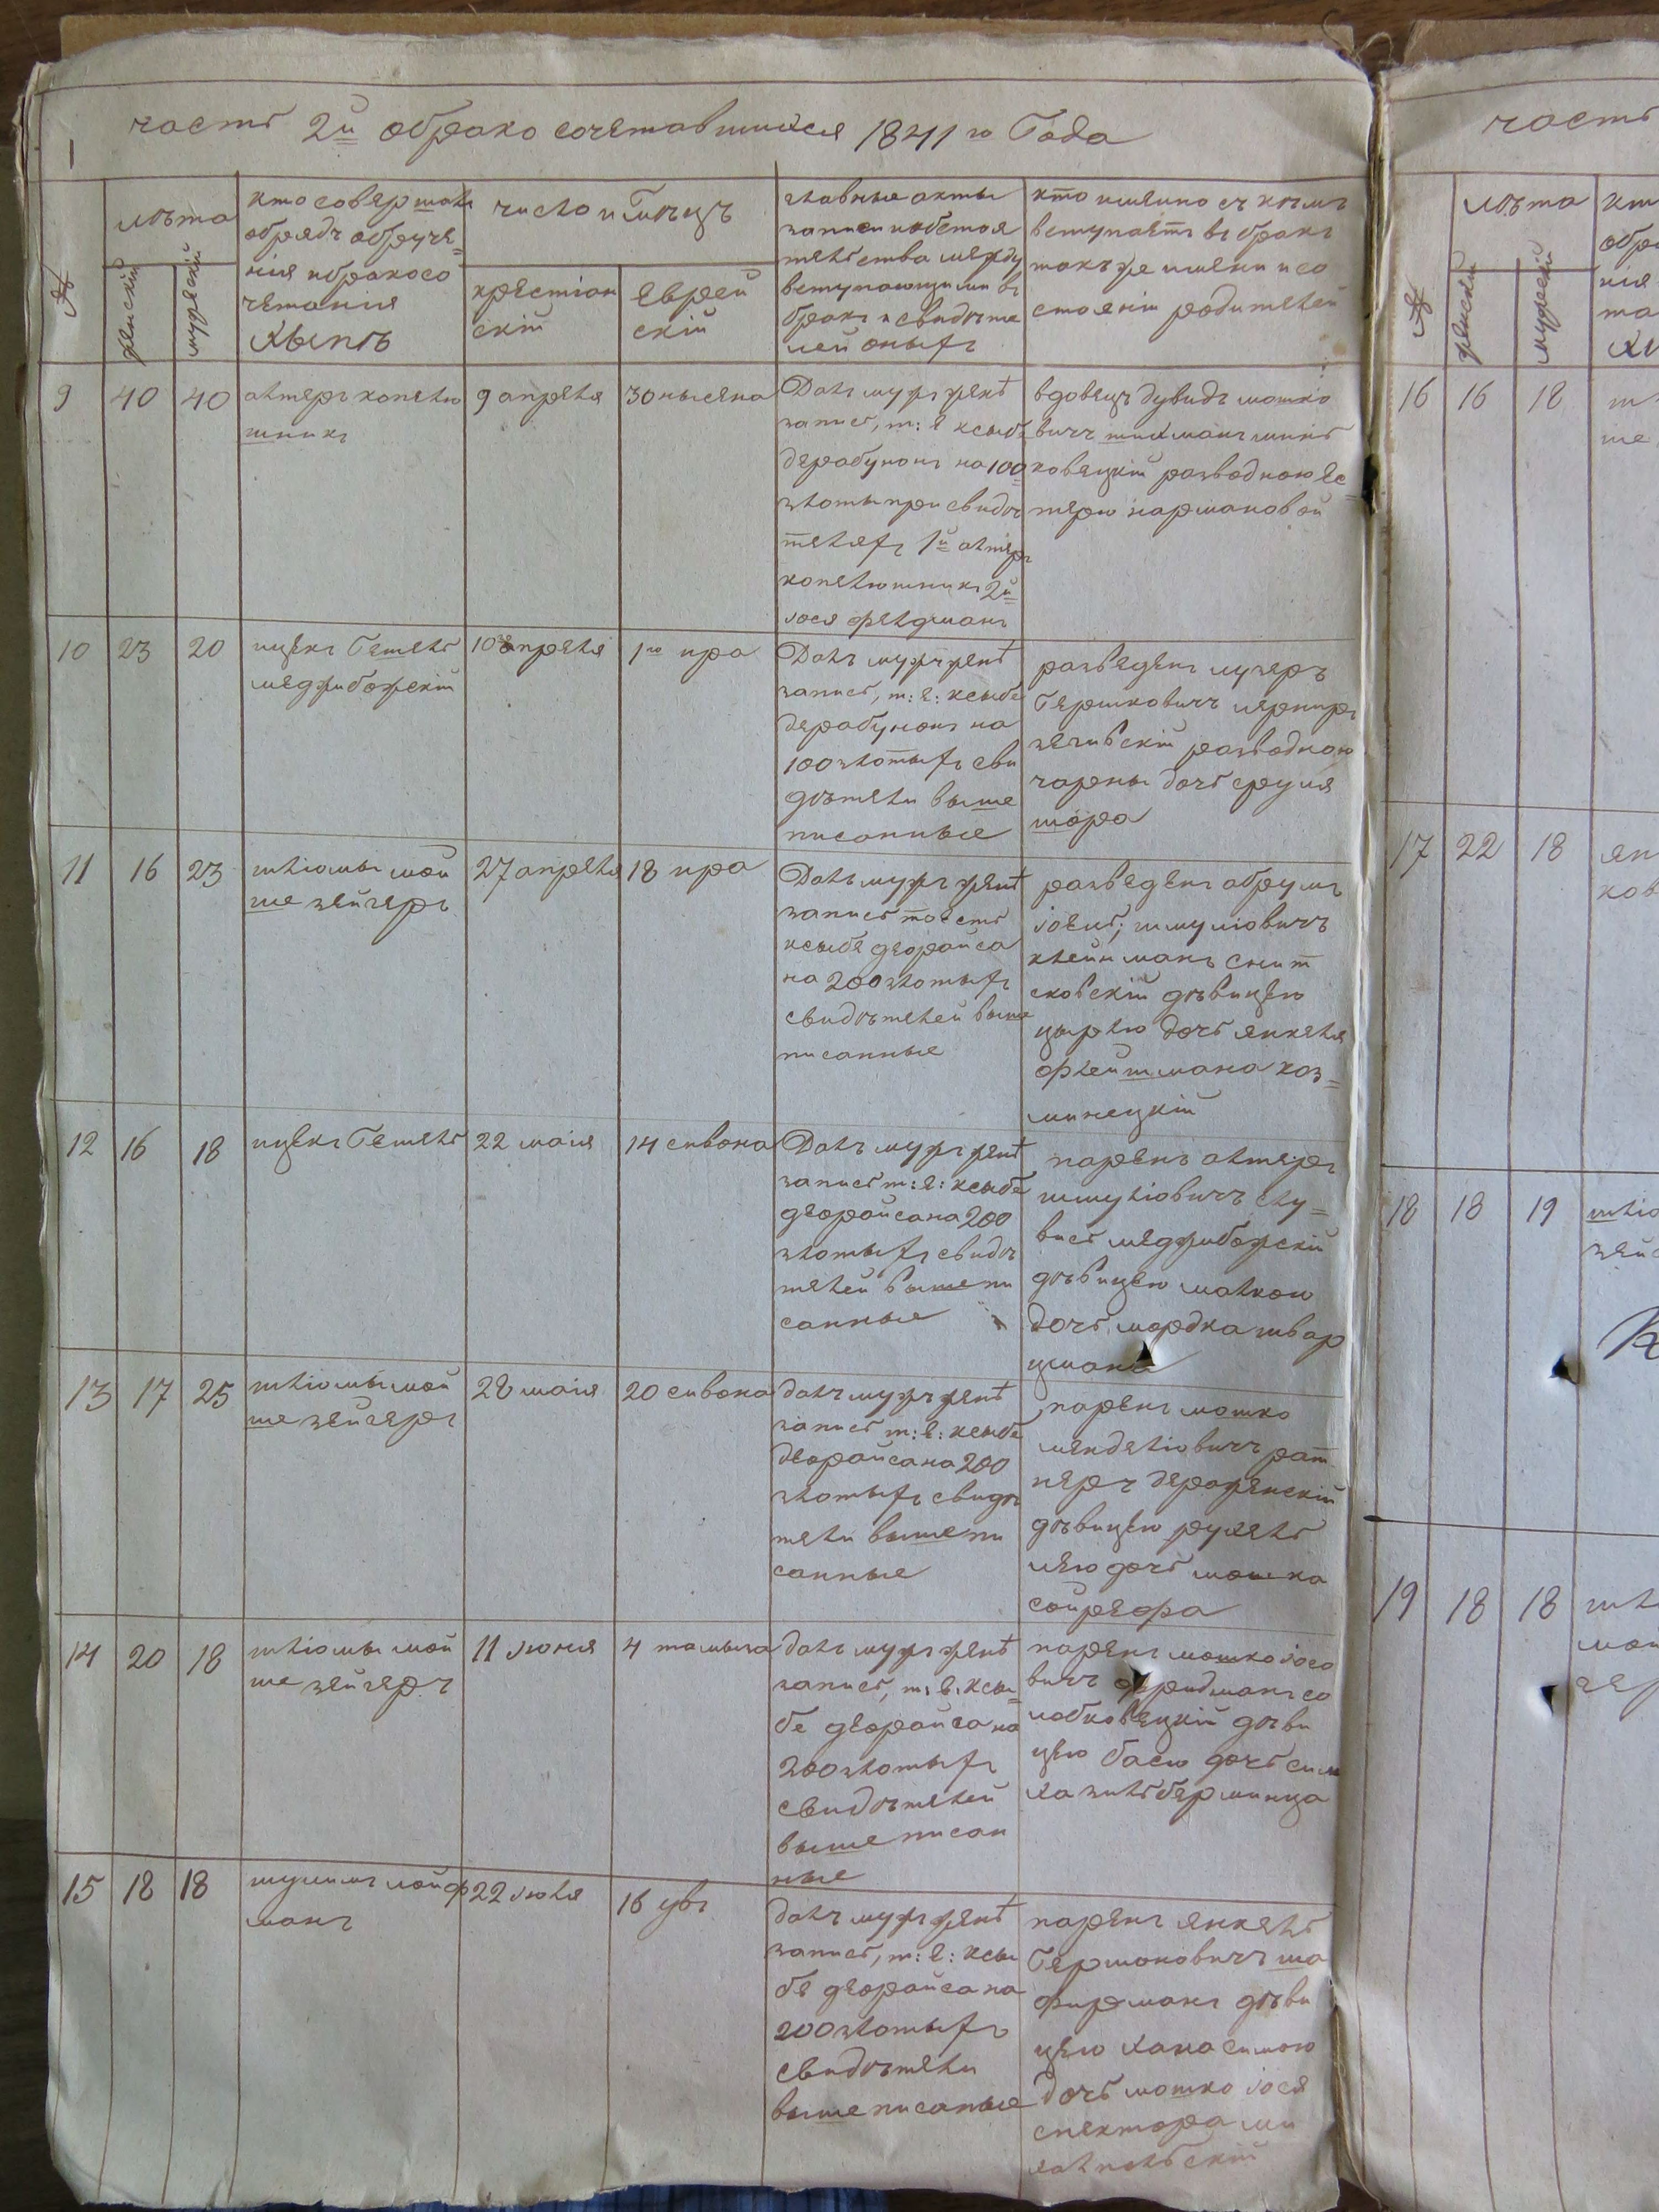 часть 2й обрако сочетавшихся 1841 го Года
1
№
лѣта
женскій
мужескій
кто совершалъ
обрядъ обруче=
нія и бракосо
четанія
число и мѣсяцъ
христіан
скій
еврей
скій
главные акты
записи и обстоя
тельства между
вступающими въ
бракъ и свидѣте
лей оныхъ
кто именно съ кѣмъ
вступаетъ въ бракъ
такъ же имена и со
стояніи родителей
9
40
40
алтеръ копелю
шникъ
9 апреля
30 нысена
Далъ мужъ женѣ
запись, т: е ксыбе
дерабунонъ на 100
злоты при свидѣ
телехъ 1й алтеръ
копелюшникъ 2й
іося фелдманъ
вдовецъ дувидъ мошко
вичъ
ковецкій разводною ес=
терю
10
23
20
ицекъ Гешель
меджибожскій
10 апреля
1го ира
Далъ мужъ женѣ
запись, т: е: ксыбе
дерабунонъ на
100 злотыхъ сви
дѣтели выше
писанные
разведенъ лузеръ
Гершковичъ
разводною
чарны дочь сруля
шора
11
16
23
шліомы мой
ше зейгеръ
27 апреля
18 ира
Далъ мужъ женѣ
запись тоесть
ксыбе деорайса
на 200 злотыхъ
свидѣтелей выше
писанные
разведенъ абрумъ
іосись, шмуліовичъ
клейнманъ снит
сковскій дѣвицею
цырлю дочь янкеля
флейшмана коз=
минецкій
12
16
18
ицекъ Гешель
22 маія
14 сивона
Далъ мужъ женѣ
запись т: е: ксыбе
деорайса на 200
злотыхъ свидѣ
телей выше пи
санные
паренъ алтеръ
шмуліовичъ слу=
вись меджибожскій
дѣвицею малкою
дочь мордка швар
цмана
13
17
25
шліомы мой
ше зейгеръ
28 маія
20 сивона
далъ мужъ женѣ
запись т: е: ксыбе
деорайса на 200
злотыхъ свидѣ
тели выше пи
санные
паренъ мошко
менделіовичъ рат
неръ деражнскій
дѣвицею рухель
лею дочь мошка
сойрефа
14
20
18
шліомы мой
ше зейгеръ
11 іюня
4 тамыза
далъ мужъ женѣ
запись, т: е: ксы=
бе деорайса на
200 злотыхъ
свидѣтелей
выше писан
ные
паренъ мошко іосо
вичъ фридманъ со
лобковецкій дѣви
цею басю дочь сим
ха зильберминца
15
18
18
шулимъ лойф
манъ
22 іюля
16 увъ
далъ мужъ женѣ
запись, т: е: ксы
бе деорайса на
200 злотыхъ
свидѣтели
выше писаные
паренъ янкель
Гершоковичъ ша
фирманъ дѣви
цею хана симою
дочь мошко іося
спектора ми
халпольскій
часть
№
лѣта
женскій
мужескій
16
16
18
17
22
18
18
18
19
19
18
18